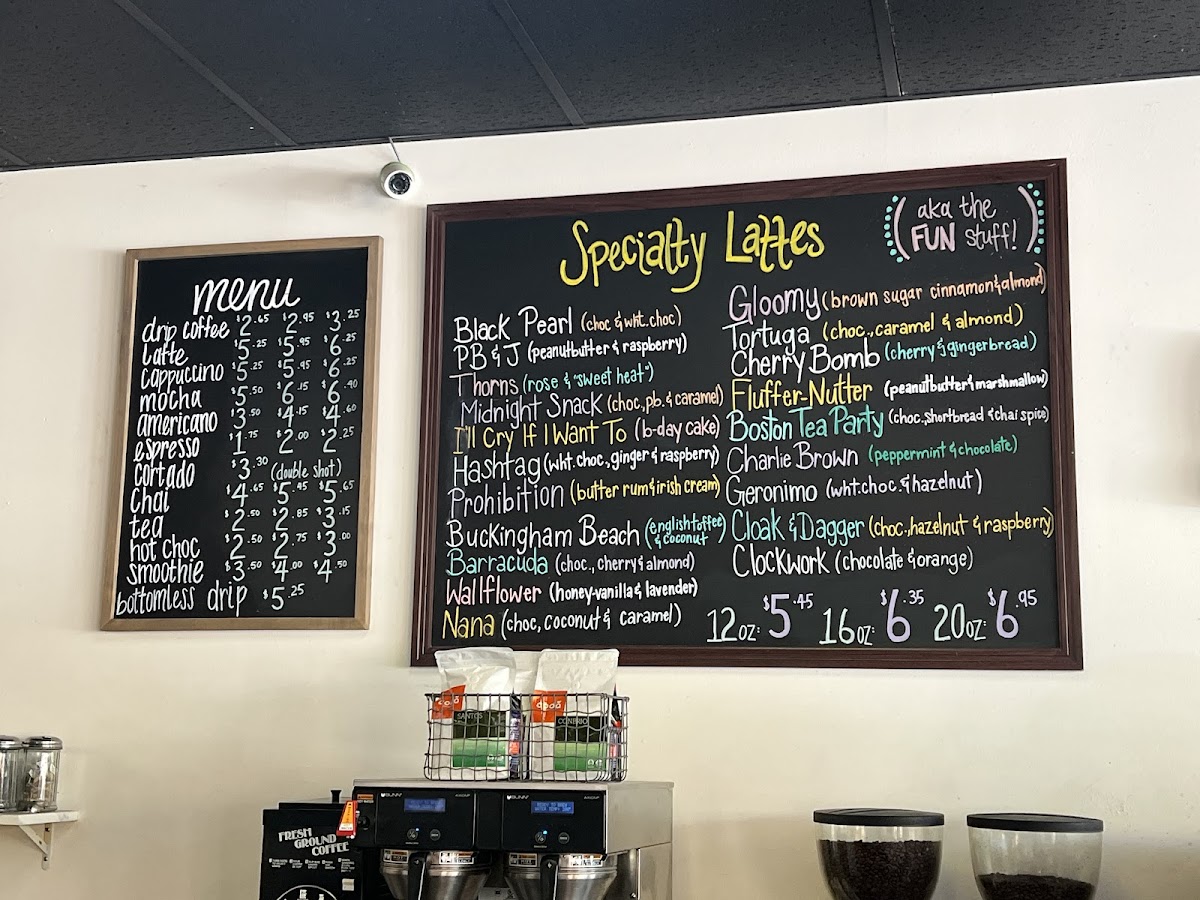 menu
drip coffee $2.65 $2.95 $3.25
latte $5.25 $5.95 $6.25
cappuccino $5.25 $5.95 $6.25
mocha $5.50 $6.15 $6.90
americano $3.50 $4.15 $4.60
espresso $1.75 $2.00 $2.25
cortado $3.30 (double shot)
chai $4.65 $5.45 $5.65
tea $2.50 $2.85 $3.15
hot choc $2.50 $2.75 $3.00
smoothie $3.50 $4.00 $4.50
bottomless drip $5.25
Specialty Lattes
(aka the
FUN stuff!)
Black Pearl (choc & wht. choc)
PB & J (peanutbutter & raspberry)
Thorns (rose & "sweet heat")
Midnight Snack (choc, pb. & caramel)
I'll Cry If I Want To (b-day cake)
Hashtag (wht. choc., ginger & raspberry)
Prohibition (butter rum & irish cream)
Buckingham Beach (english toffee & coconut)
Barracuda (choc., cherry & almond)
Wallflower (honey-vanilla & lavender)
Nana (choc, coconut & caramel)
Gloomy (brown sugar cinnamon & almond)
Tortuga (choc., caramel & almond)
Cherry Bomb (cherry & gingerbread)
Fluffer-Nutter (peanutbutter & marshmallow)
Boston Tea Party (choc, shortbread & chai spice)
Charlie Brown (peppermint & chocolate)
Geronimo (wht. choc. & hazelnut)
Cloak & Dagger (choc., hazelnut & raspberry)
Clockwork (chocolate & orange)
12oz: $5.45 16oz: $6.35 20oz: $6.95
SANTOS
BUNN
BUNN
FRESH
GROUND
COFFEE